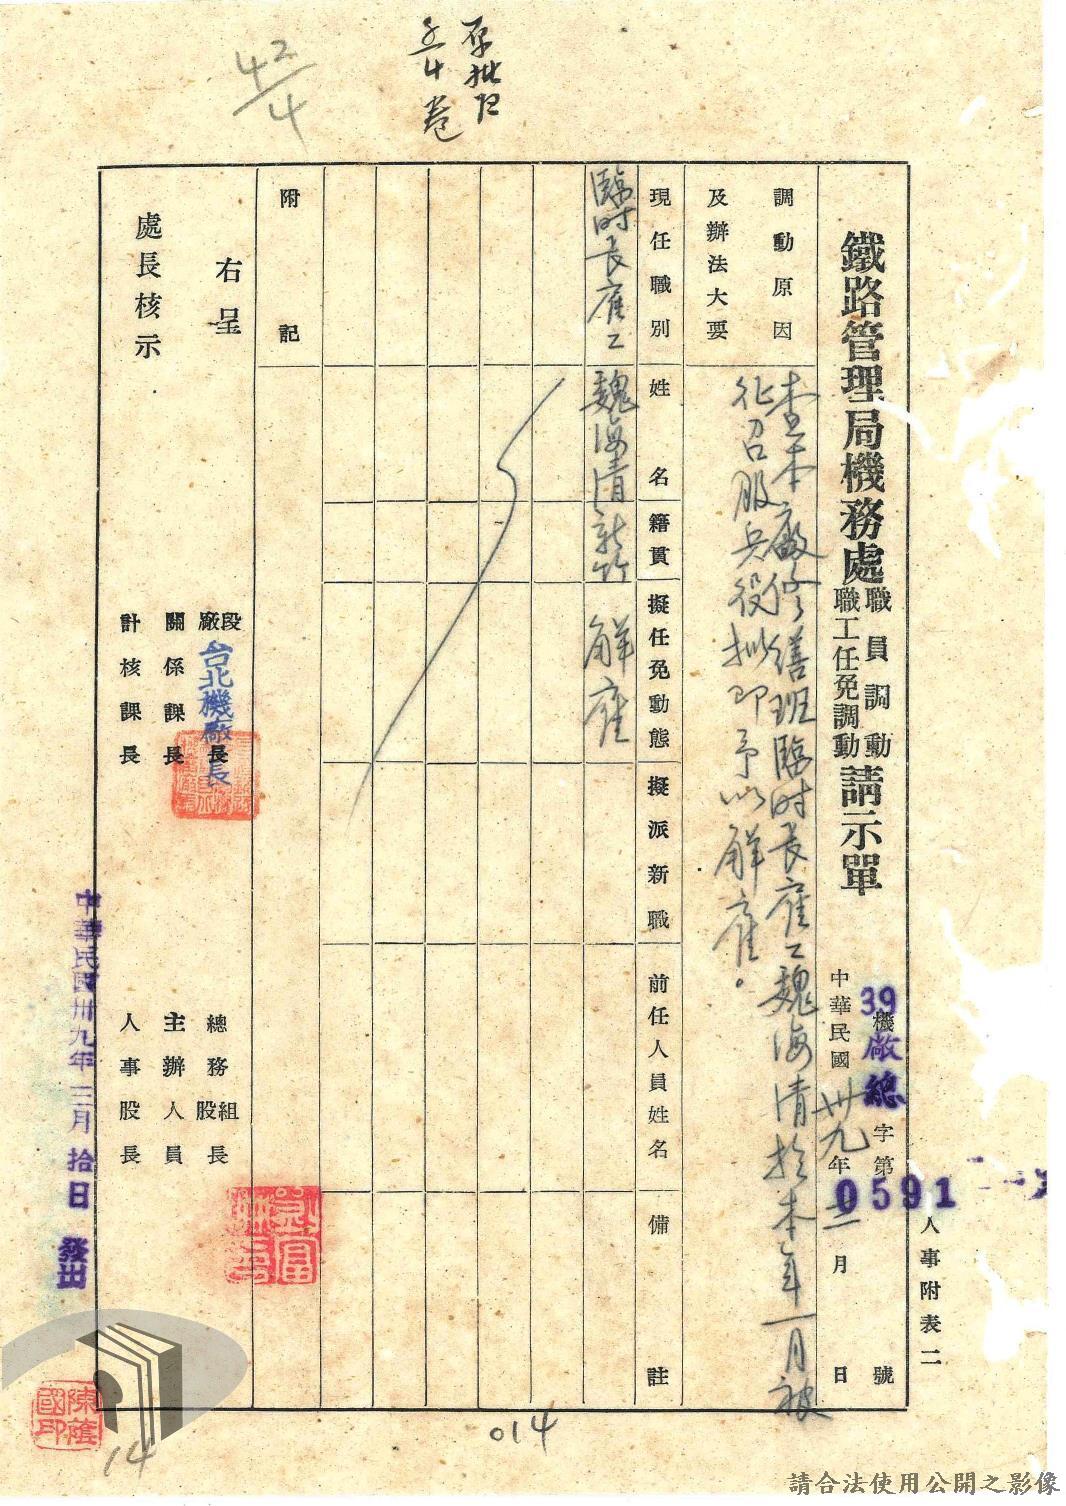 原批在
五4卷
42/4
人事附表二
鐵路管理局機務處職員調動請示單
職工任免調動
39機廠總字第0591號
中華民國卅九年二月 日
調動原因
及辦法大要
查本廠修繕班臨时長雇工魏海清於本年一月被
征召服兵役拟即予以解雇。
現任職別
姓名
籍貫
擬任免動態
擬派新職
前任人員姓名
備註
臨时長雇工
魏海清
新竹
解雇
附記
右呈
處長核示
段廠長
台北機廠長
關係課長
計核課長
總務組股長
主辦人員
人事股長
中華民國卅九年三月拾日發出
陳蔭國印
014
14
請合法使用公開之影像